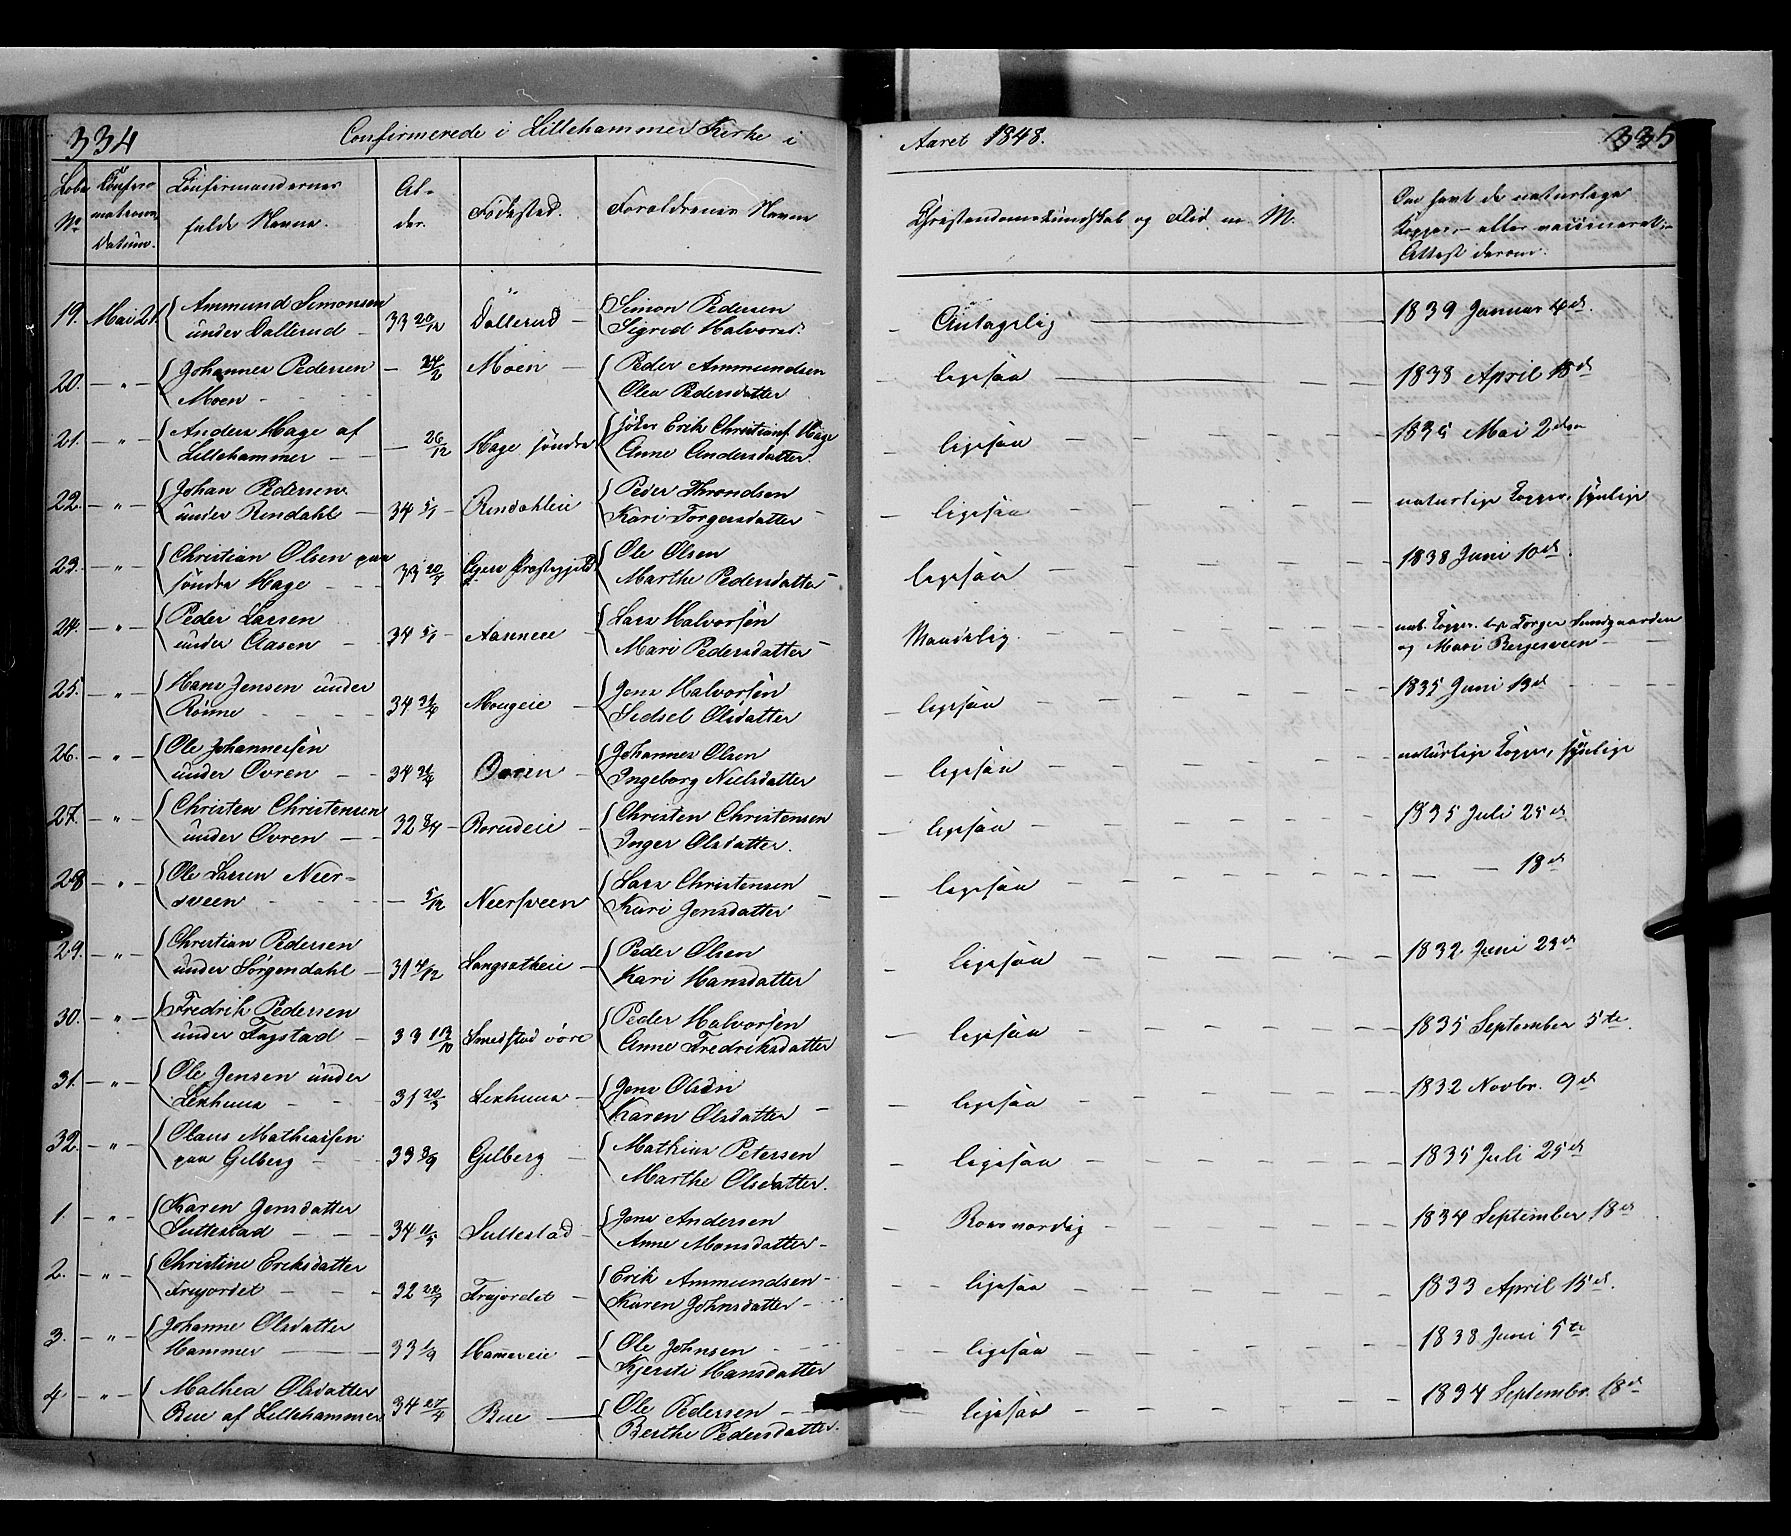 334 Confirmerede i Lillehammer Kirke i Aaret 1848. 335
Løbe No. Confirmations Datum. Confirmandernes fulde Navne. Alder. Fødested. Forældrenes Navne Christendomskundskab og Flid m. M. Om havt de naturlige Kopper, eller vaccineret; Attest derom.
19. Mai 21. Ammund Simonsen under Dallerud 33 20/12 Dallerud Simon Pedersen Sigrid Halvorsd. Antagelig 1839 Januar 4d.
20. " Johannes Pedersen Moen 24/2 Moen Peder Ammundsen Olea Pedersdatter ligesaa 1838 April 18d
21. " Anders Hage af Lillehammer 26/12 Hage søndre Erik Christians. Hage Anne Andersdatter. ligesaa 1835 Mai 2den
22. " Johan Pedersen under Rindahl 34 5/1 Rindahleie Peder Throndsen Kari Torgersdatter ligesaa naturlige Kopper, synlige
23. " Christian Olsen paa søndre Hage 33 20/7 Præstegjeld Ole Olsen Marthe Pedersdatter ligesaa 1838 Juni 10d.
24. " Peder Larsen under Aasen 34 5/1 Aaseneie Lars Halvorsen Mari Pedersdatter Maadelig nat. Kopper Torger Sundgaarden og Mari Bergesveen
25. " Hans Jensen under Rønne 34 21/4 Mougeie Jens Halvorsen Sidsel Olsdatter ligesaa 1835 Juni 13d
26. " Ole Johannessen under Ovren 34 21/4 Ovren Johannes Olsen Ingeborg Nielsdatter ligesaa naturlige Kopper, synlige
27. " Christen Christensen under Ovren 32 8/4 Rorudeie Christen Christensen Inger Olsdatter. ligesaa 1835 Juli 25d
28 " Ole Larsen Neersveen 5/12 Neersveen Lars Christensen Kari Jensdatter ligesaa 18d
29. " Christian Pedersen under Jørgendahl 31 4/12 Langsætheie Peder Olsen Kari Hansdatter ligesaa 1832 Juni 23d
30. " Fredrik Pedersen under Fagstad 33 13/10 Smedstad øvre Peder Halvorsen Anne Fredriksdatter ligesaa 1835 September 5te.
31. " Ole Jensen under Lexhuus 31 20/3 Lexhuus Jens Olsen Karen Olsdatter ligesaa 1832 Novbr. 9d
32. " Olaus Mathiassen paa Gilberg 33 3/9 Gilberg Mathias Petersen Marthe Olsdatter. ligesaa 1835 Juli 25d
1. " Karen Jensdatter Suttestad 34 11/5 Suttestad Jens Andersen Anne Monsdatter Roesværdig 1834 September 18d
2. " Christine Eriksdatter Trøjordet 32 22/7 Trøjordet Erik Ammundsen Karen Johnsdatter ligesaa 1833 April 15d.
3. " Johanne Olsdatter Hammer 33 1/9 Hammereie Ole Johnsen Kjersti Hansdatter ligesaa 1838 Juni 5te
4. " Mathea Olsdatter Rue af Lillehammer 34 27/4 Rue Ole Pedersen Berthe Pedersdatter. ligesaa 1834 Septembr. 18d